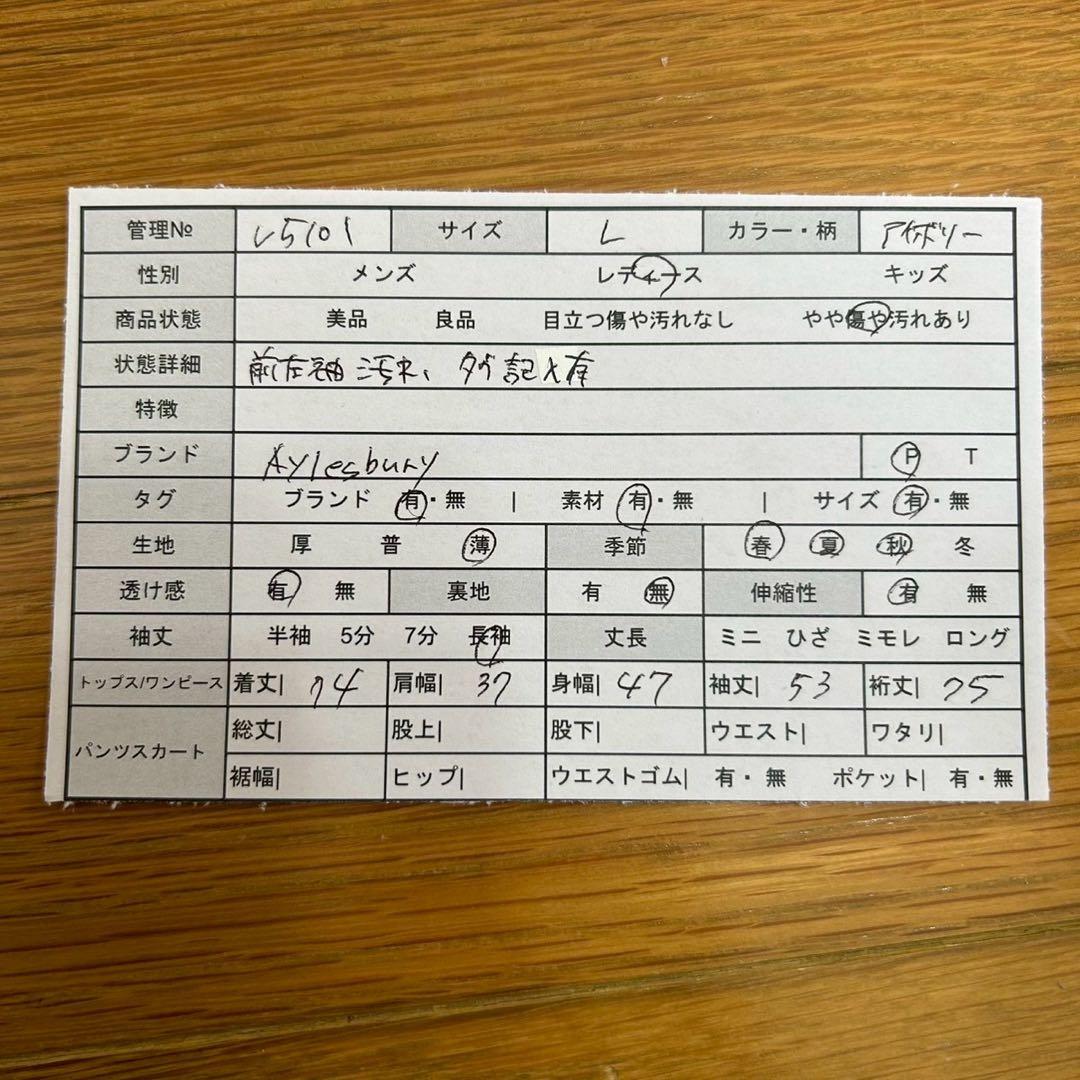 管理№ L5101 サイズ L カラー・柄 アイボリー
性別 メンズ レディース キッズ
商品状態 美品 良品 目立つ傷や汚れなし やや傷や汚れあり
状態詳細 前左袖汚れ、タグ記入有
特徴
ブランド Aylesbury P T
タグ ブランド 有・無 | 素材 有・無 | サイズ 有・無
生地 厚 普 薄 季節 春 夏 秋 冬
透け感 有 無 裏地 有 無 伸縮性 有 無
袖丈 半袖 5分 7分 長袖 丈長 ミニ ひざ ミモレ ロング
トップス/ワンピース 着丈| 74 肩幅| 37 身幅| 47 袖丈| 53 裄丈| 75
パンツスカート 総丈| 股上| 股下| ウエスト| ワタリ|
裾幅| ヒップ| ウエストゴム| 有・無 ポケット| 有・無